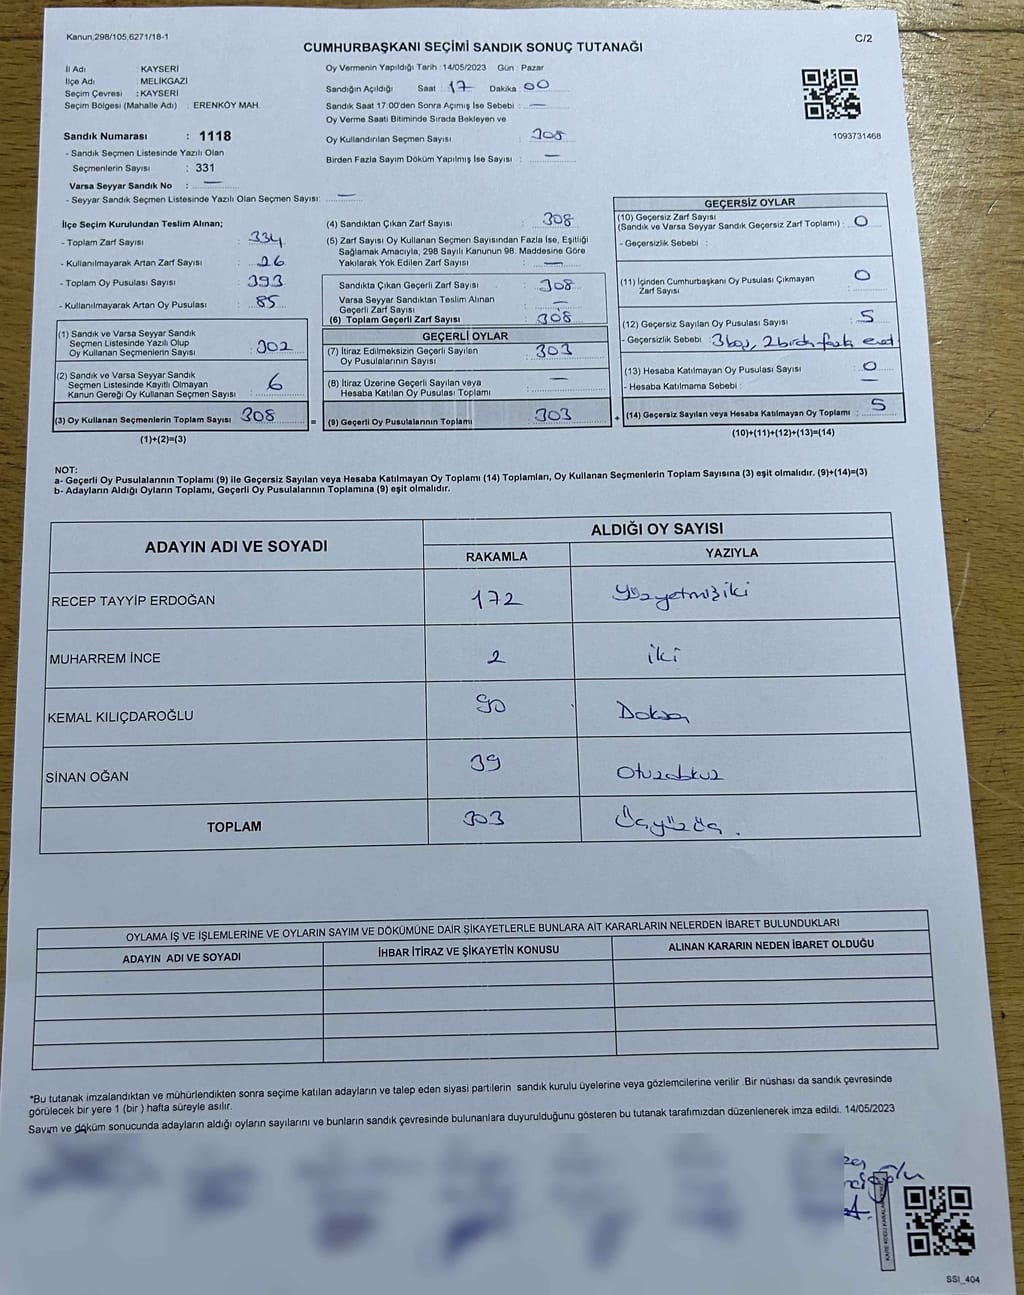 Kanun:298/105,6271/18-1
C/2
CUMHURBAŞKANI SEÇİMİ SANDIK SONUÇ TUTANAĞI
İl Adı : KAYSERİ
İlçe Adı : MELİKGAZİ
Seçim Çevresi : KAYSERİ
Seçim Bölgesi (Mahalle Adı) : ERENKÖY MAH.
Sandık Numarası : 1118
- Sandık Seçmen Listesinde Yazılı Olan
Seçmenlerin Sayısı : 331
Varsa Seyyar Sandık No : —
- Seyyar Sandık Seçmen Listesinde Yazılı Olan Seçmen Sayısı: —
Oy Vermenin Yapıldığı Tarih : 14/05/2023 Gün : Pazar
Sandığın Açıldığı Saat : 17 Dakika : 00
Sandık Saat 17:00'den Sonra Açımış İse Sebebi : —
Oy Verme Saati Bitiminde Sırada Bekleyen ve
Oy Kullandırılan Seçmen Sayısı : 308
Birden Fazla Sayım Döküm Yapılmış İse Sayısı : —
1093731468
İlçe Seçim Kurulundan Teslim Alınan;
- Toplam Zarf Sayısı : 334
- Kullanılmayarak Artan Zarf Sayısı : 26
- Toplam Oy Pusulası Sayısı : 393
- Kullanılmayarak Artan Oy Pusulası : 85
(1) Sandık ve Varsa Seyyar Sandık
Seçmen Listesinde Yazılı Olup
Oy Kullanan Seçmenlerin Sayısı : 302
(2) Sandık ve Varsa Seyyar Sandık
Seçmen Listesinde Kayıtlı Olmayan
Kanun Gereği Oy Kullanan Seçmen Sayısı : 6
(3) Oy Kullanan Seçmenlerin Toplam Sayısı : 308
(1)+(2)=(3)
(4) Sandıktan Çıkan Zarf Sayısı : 308
(5) Zarf Sayısı Oy Kullanan Seçmen Sayısından Fazla İse, Eşitliği
Sağlamak Amacıyla, 298 Sayılı Kanunun 98. Maddesine Göre
Yakılarak Yok Edilen Zarf Sayısı : —
Sandıkta Çıkan Geçerli Zarf Sayısı : 308
Varsa Seyyar Sandıktan Teslim Alınan
Geçerli Zarf Sayısı : —
(6) Toplam Geçerli Zarf Sayısı : 308
GEÇERLİ OYLAR
(7) İtiraz Edilmeksizin Geçerli Sayılan
Oy Pusulalarının Sayısı : 303
(8) İtiraz Üzerine Geçerli Sayılan veya
Hesaba Katılan Oy Pusulası Toplamı : —
= (9) Geçerli Oy Pusulalarının Toplamı : 303
GEÇERSİZ OYLAR
(10) Geçersiz Zarf Sayısı
(Sandık ve Varsa Seyyar Sandık Geçersiz Zarf Toplamı) : 0
- Geçersizlik Sebebi :
(11) İçinden Cumhurbaşkanı Oy Pusulası Çıkmayan
Zarf Sayısı : 0
(12) Geçersiz Sayılan Oy Pusulası Sayısı : 5
- Geçersizlik Sebebi : 3 boş, 2 birden fazla evet
(13) Hesaba Katılmayan Oy Pusulası Sayısı : 0
- Hesaba Katılmama Sebebi : —
+ (14) Geçersiz Sayılan veya Hesaba Katılmayan Oy Toplamı : 5
(10)+(11)+(12)+(13)=(14)
NOT:
a- Geçerli Oy Pusulalarının Toplamı (9) ile Geçersiz Sayılan veya Hesaba Katılmayan Oy Toplamı (14) Toplamları, Oy Kullanan Seçmenlerin Toplam Sayısına (3) eşit olmalıdır. (9)+(14)=(3)
b- Adayların Aldığı Oyların Toplamı, Geçerli Oy Pusulalarının Toplamına (9) eşit olmalıdır.
ADAYIN ADI VE SOYADI ALDIĞI OY SAYISI
RAKAMLA YAZIYLA
RECEP TAYYİP ERDOĞAN 172 Yüzyetmişiki
MUHARREM İNCE 2 iki
KEMAL KILIÇDAROĞLU 90 Doksan
SİNAN OĞAN 39 Otuzdokuz
TOPLAM 303 Üçyüzüç.
OYLAMA İŞ VE İŞLEMLERİNE VE OYLARIN SAYIM VE DÖKÜMÜNE DAİR ŞİKAYETLERLE BUNLARA AİT KARARLARIN NELERDEN İBARET BULUNDUKLARI
ADAYIN ADI VE SOYADI İHBAR İTİRAZ VE ŞİKAYETİN KONUSU ALINAN KARARIN NEDEN İBARET OLDUĞU
*Bu tutanak imzalandıktan ve mühürlendikten sonra seçime katılan adayların ve talep eden siyasi partilerin sandık kurulu üyelerine veya gözlemcilerine verilir .Bir nüshası da sandık çevresinde
görülecek bir yere 1 (bir ) hafta süreyle asılır.
Sayım ve döküm sonucunda adayların aldığı oyların sayılarını ve bunların sandık çevresinde bulunanlara duyurulduğunu gösteren bu tutanak tarafımızdan düzenlenerek imza edildi. 14/05/2023
SSI_404